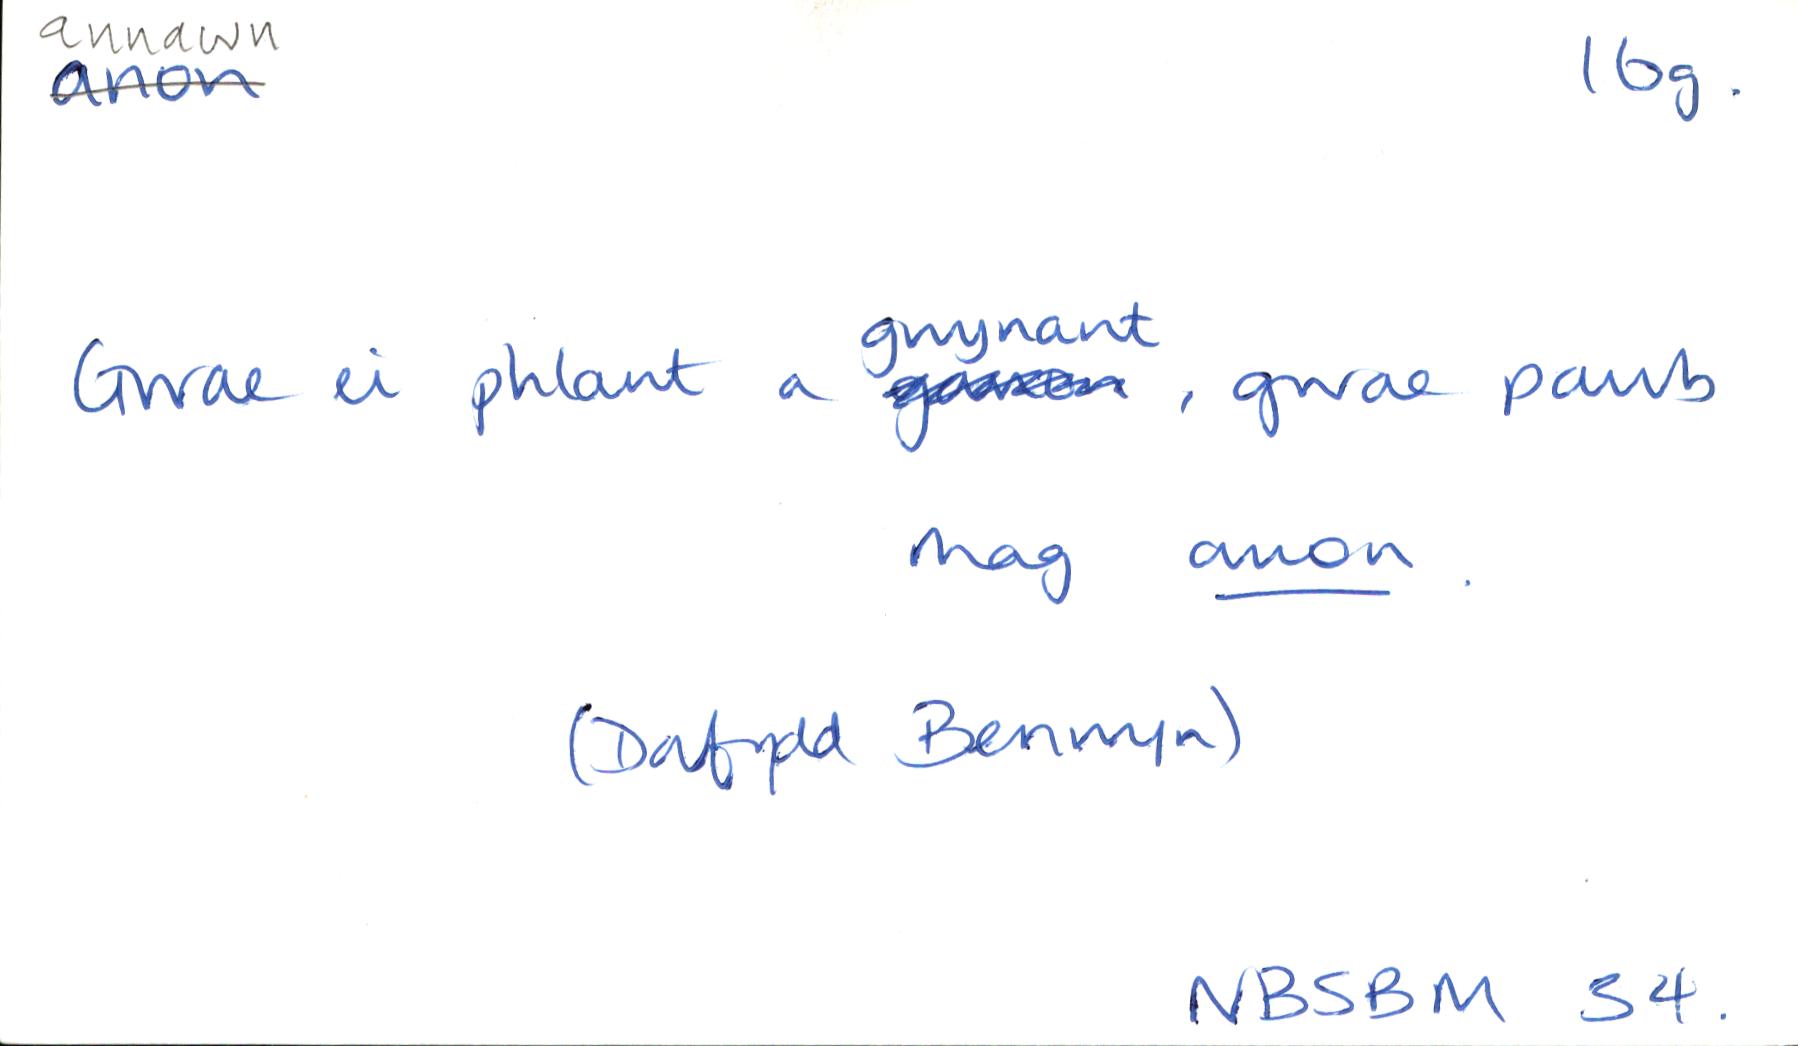 annawn
anon 16g.
gwynant
Gwae ei phlant a , gwae pawb
mag anon.
(Dafydd Benwyn)
NBSBM 34.